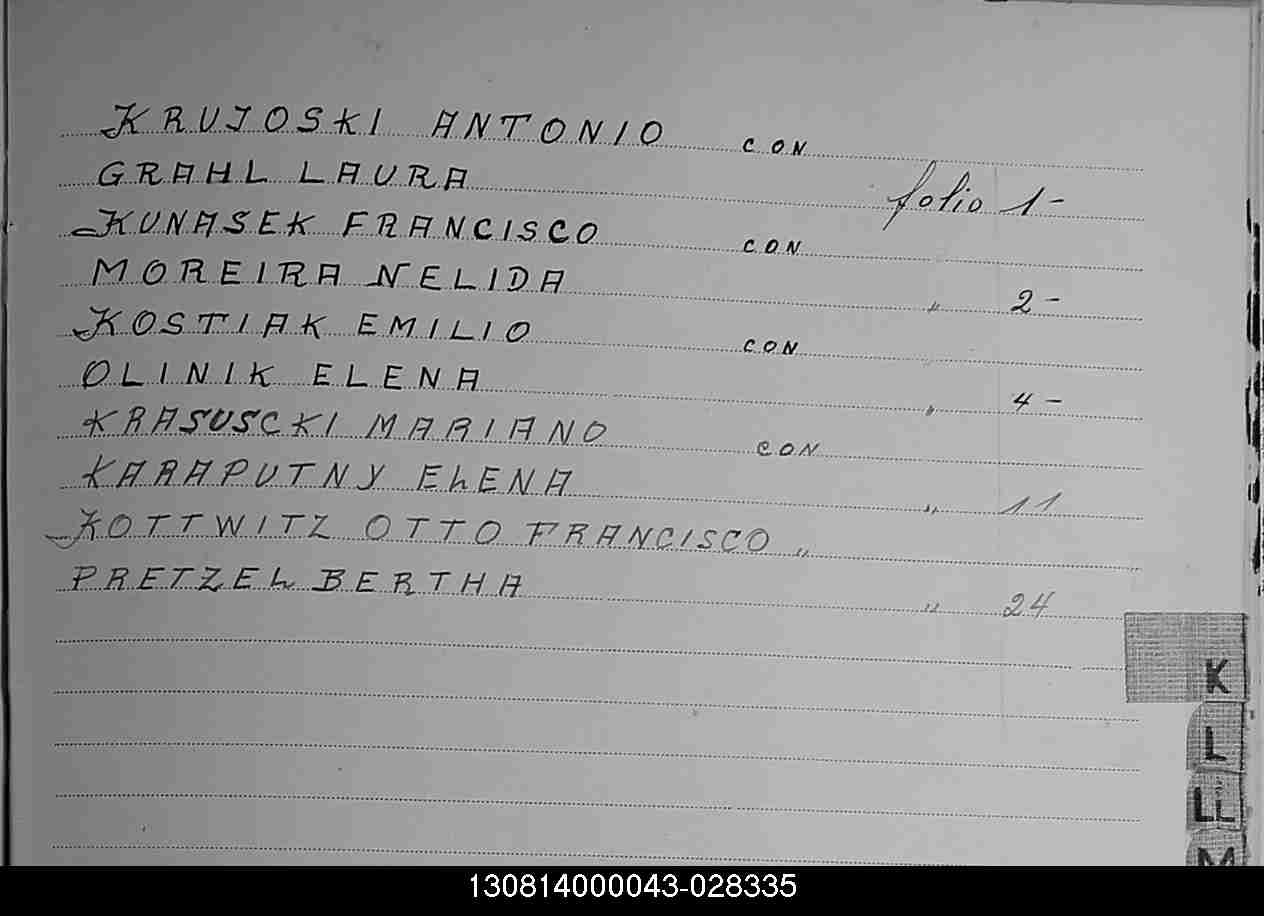 KRUJOSKI ANTONIO CON
GRAHL LAURA folio 1-
KUNASEK FRANCISCO CON
MOREIRA NELIDA " 2-
KOSTIAK EMILIO CON
OLINIK ELENA " 4-
KRASUSCKI MARIANO CON
KARAPUTNY ELENA " 11
KOTTWITZ OTTO FRANCISCO "
PRETZEL BERTHA " 24
K
L
LL
M
130814000043-028335